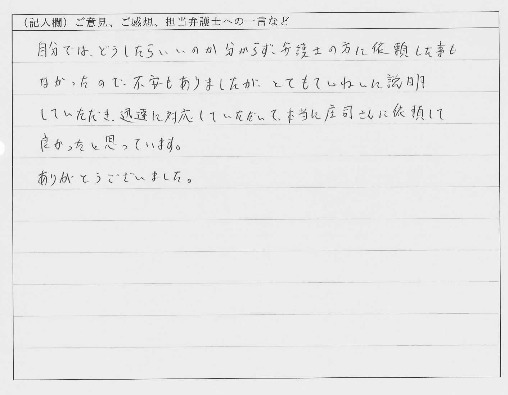 （記入欄）ご意見、ご感想、担当弁護士への一言など
自分では、どうしたらいいのか分からず、弁護士の方に依頼した事も
なかったので、不安もありましたが、とてもていねいに説明
していただき、迅速に対応していただいて、本当に庄司さんに依頼して
良かったと思っています。
ありがとうございました。